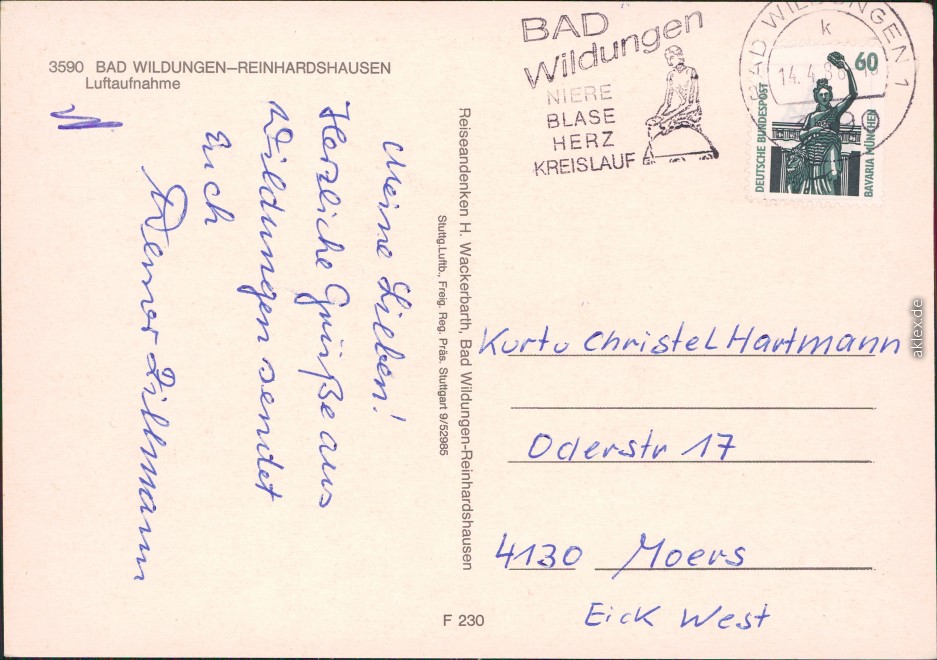 3590 BAD WILDUNGEN–REINHARDSHAUSEN
Luftaufnahme
Meine Lieben!
Herzliche Grüße aus
Wildungen sendet
Euch
Werner Dillmann
Reiseandenken H. Wackerbarth, Bad Wildungen-Reinhardshausen
Stuttg.Luftb., Freig. Reg. Präs. Stuttgart 9/52985
F 230
BAD
Wildungen
NIERE
BLASE
HERZ
KREISLAUF
BAD WILDUNGEN 1
k
14.4.
60
DEUTSCHE BUNDESPOST
BAVARIA MÜNCHEN
Kurt u Christel Hartmann
Oderstr 17
4130 Moers
Eick West
aklex.de